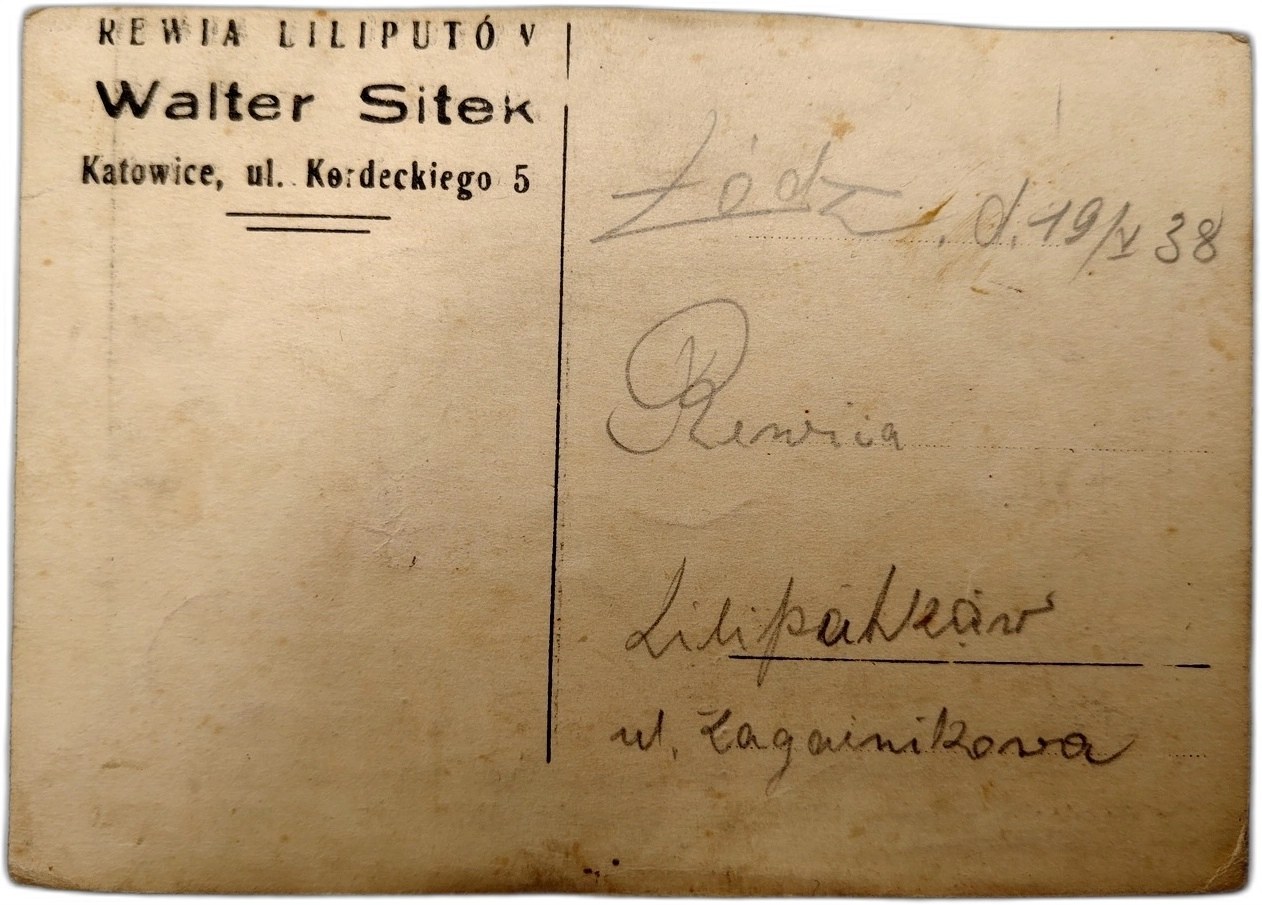 REWIA LILIPUTÓW
Walter Sitek
Katowice, ul. Kordeckiego 5
Łódź, d. 19/V 38
Rewiia
Liliputków
ul. Zagainikowa